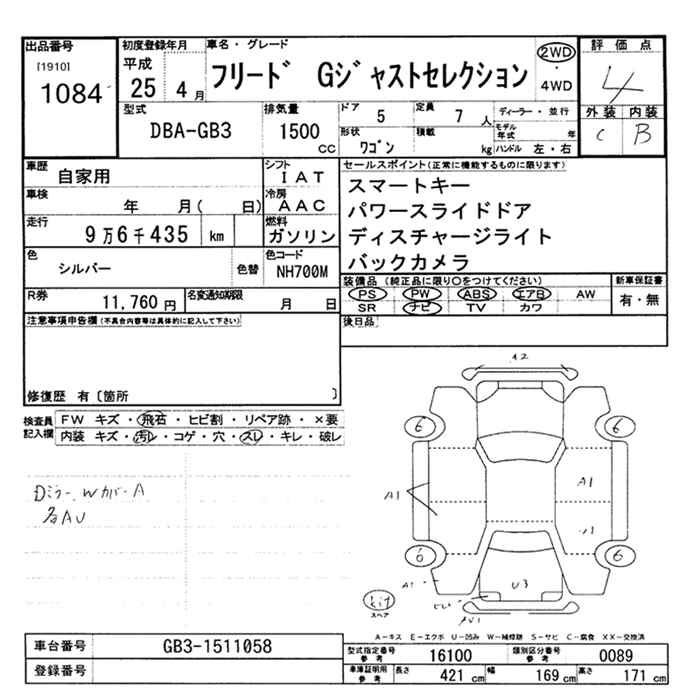 出品番号 初度登録年月 車名・グレード 評価点
[1910] 平成 2WD
1084 25 4月 フリード Gジャストセレクション ・ 4
4WD
型式 排気量 ドア 5 定員 7人 ディーラー・並行 外装 内装
DBA-GB3 1500cc 形状 ワゴン 積載 kg モデル年式 年 C B
ハンドル 左・右
車歴 自家用 シフト IAT セールスポイント(正常に機能するものに限ります)
車検 年 月( 日) 冷房 AAC スマートキー
走行 9万6千435 km 燃料 ガソリン パワースライドドア
ディスチャージライト
色 シルバー 色替 色コード NH700M バックカメラ
装備品(純正品に限り○をつけてください) 新車保証書
R券 11,760円 名変通知期限 月 日 PS PW ABS エアB AW 有・無
SR ナビ TV カワ
注意事項申告欄(不具合内容等は具体的に記入して下さい) 後日品
修復歴 有〔箇所 〕
検査員記入欄 FW キズ・飛石・ヒビ割・リペア跡・×要
内装 キズ・汚レ・コゲ・穴・スレ・キレ・破レ
A2
6 6
A1 A1
Dミラー、Wカバー A
各AU
6 6
A1 U3
kit
スペア
A-キズ E-エクボ U-凹み W-補修跡 S-サビ C-腐食 XX-交換済
車台番号 GB3-1511058 型式指定番号 参考 16100 類別区分番号 参考 0089
登録番号 車庫証明用 参考 長さ 421cm 幅 169cm 高さ 171cm